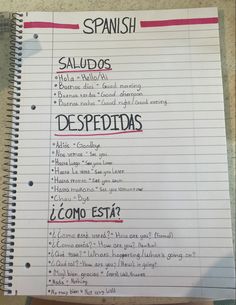 SPANISH
SALUDOS
Hola - Hello/Hi
Buenos días - Good morning
Buenas tardes - Good afternoon
Buenas noches - Good night/Good evening
DESPEDIDAS
Adiós - Goodbye
Nos vemos - See you
Hasta luego - See you later
Hasta la vista - See you later
Hasta pronto - See you soon
Hasta mañana - See you tomorrow
Chau - Bye
¿CÓMO ESTÁ?
¿Cómo está usted? - How are you? (Formal)
¿Cómo estás? - How are you?
¿Qué pasa? - What's happening/What's going on?
¿Qué tal? - How are you?/How's it going?
Muy bien, gracias -
Nada - Nothing
No muy bien - Not very well